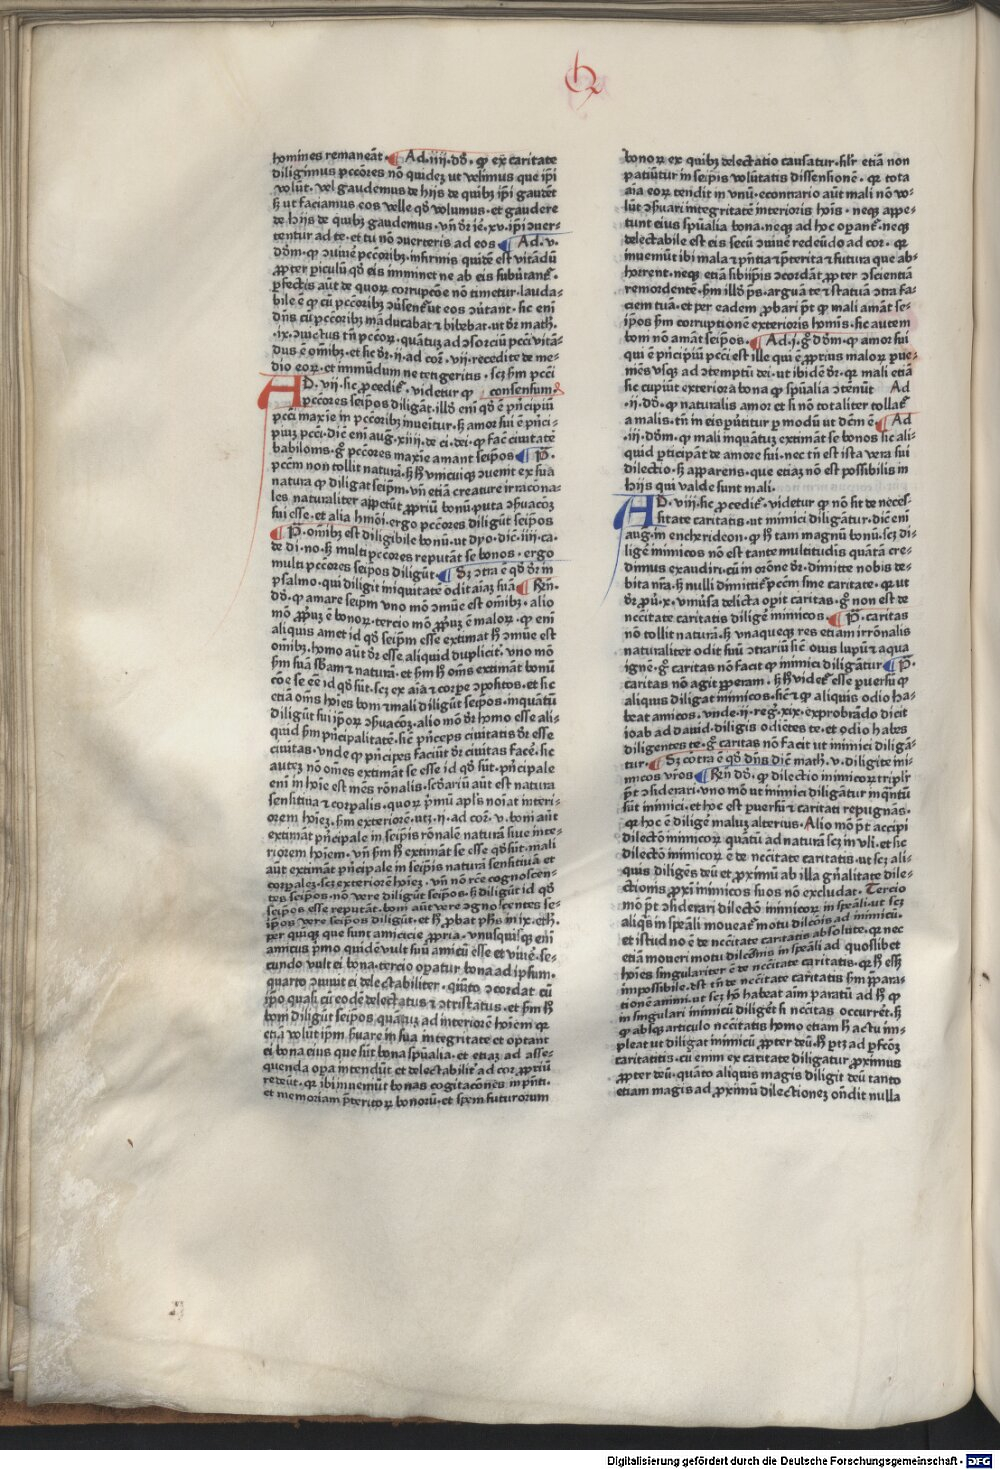 Q
homines remaneāt · Ad .iiij. dō. ꝙ ex caritate
diligimus pccōres nō quidez ut velimus que ip̄i
volūt. vel gaudemus de hijs de quibz ip̄i gaudēt
ꝫ ut faciamus eos velle qd̄ volumus. et gaudere
de hijs de quibz gaudemus. vn̄ dr̄ je. xv. ip̄i ↄuer-
tentur ad te. et tu nō ↄuerteris ad eos Ad .v.
dōm. ꝙ ↄuiūe pccōribz. infirmis quidē est vitādū
ꝓpter piculū qd̄ eis imminet ne ab eis subūtant᷑.
ꝑfectis aūt de quoꝝ corrupcōe nō timetur. lauda-
bile ē ꝙ cū pccōribz ↄūsent᷑ ut eos ↄūtant. sic eni
dn̄s cū pccōribz māducabat ⁊ bibebat. ut dr̄ math.
.ix. ↄuictus tn̄ pccoꝝ. quātuz ad ↄsorciū pcci vitā-
dus ē om̄ibz. et sic dr̄ .ij. ad cor. vij. recedite de me-
dio eoꝝ. et immūdum ne tetigeritis. scz ẜm pcci
AD. vij. sic ꝓcedit᷑. videtur ꝙ consensum
pccōres seip̄os diligāt. illd̄ eni qd̄ ē pn̄cipiū
pcci maxie in pccōribz inueitur. ꝫ amor sui ē pn̄ci-
piuz pcci. dic̄ eni aug. xiiij. de ci. dei. ꝙ fac̄ ciuitatē
babilonis. gͦ pccōres maxie amant seip̄os P̄.
pccm non tollit naturā. ꝫ hͦ vnicuiqꝫ ↄuenit ex sua
natura ꝙ diligat seip̄m. vn̄ etiā creature irracōna-
les naturaliter appetūt ꝓpriū bonū. puta ↄħuacōz
sui esse. et alia hmōi. ergo pccōres diligūt seip̄os
P̄. om̄ibz est diligibile bonū. ut dyo. dic̄. iiij. ca.
de di. no. ꝫ multi pccores reputāt se bonos. ergo
multi pccores seip̄os diligūt. Sz ↄtra ē qd̄ dr̄ in
psalmo. qui diligit iniquitatē odit aīaz suā Rn̄.
dō. ꝙ amare seip̄m uno mō ↄmūe est om̄ibz. alio
mō ꝓpuz ē bonoꝝ. tercio mō ꝓpuz ē maloꝝ. ꝙ eni
aliquis amet id qd̄ seip̄m esse extimat hͦ ↄmūe est
om̄ibz. homo aūt dr̄ esse aliquid duplicit᷑. vno mō
ẜm suā sb̄am ⁊ naturā. et ẜm hͦ om̄s extimāt bonū
cōe se eē id qd̄ sūt. scz ex aīa ⁊ corpe ↄpositos. et sic
etiā om̄s hoīes boni ⁊ mali diligūt seip̄os. inquātū
diligūt sui ip̄oꝝ ↄħuacōz. alio mō dr̄ homo esse ali-
quid ẜm pn̄cipalitatē. sic̄ pn̄ceps ciuitatis dr̄ esse
ciuitas. vnde ꝙ pn̄cipes faciūt dr̄ ciuitas facē. sic
autez nō om̄es extimāt se esse id qd̄ sūt. pn̄cipale
eni in hoīe est mēs rōnalis. scd̄ariū aūt est natura
sensitiua ⁊ corpalis. quoꝝ pͥmū apl̄s noīat interi-
orem hoīez. ẜm exteriorē. utz .ij. ad cor. v. boni aūt
extimāt pn̄cipale in seip̄is rōnalē naturā siue inte-
riorem hoīem. vn̄ ẜm hͦ extimāt se esse qd̄ sūt. mali
aūt extimāt pn̄cipale in seip̄is naturā sensitiuā et
corpalez. scz exteriorē hoīez. vn̄ nō rc̄e cognoscen-
tes seip̄os. nō vere diligūt seip̄os. ꝫ diligūt id qd̄
seip̄os esse reputāt. boni aūt vere ↄgnoscentes se-
ip̄os vere seip̄os diligūt. et hͦ ꝓbat ph̄s in ix. eth.
per quinqꝫ que sunt amicicie ꝓpria. vnusquisqꝫ eni
amicus pͥmo quidē vult suū amicū esse et viuē. se-
cundo vult ei bona. tercio opatur bona ad ip̄sum.
quarto ↄuiuit ei delectabiliter. quīto ↄcordat cū
ip̄o quasi cū eodē delectatus ⁊ ↄtristatus. et ẜm hͦ
boni diligūt seip̄os quātuz ad interiorē hoīem qꝛ
etiā volūt ip̄m ẜuare in sua integritate et optant
ei bona eius que sūt bona spūalia. et etiaz ad asse-
quenda opa intendūt et delectabilit᷑ ad cor ꝓpriū
redeūt. qꝛ ibi inueniūt bonas cogitacōnes in pn̄ti.
et memoriam pͣteritoꝝ bonoꝝ. et spem futurorum
bonoꝝ ex quibz delectatio causatur. sil᷑r etiā non
patiūtur in seip̄is volūtatis dissensionē. qꝛ tota
aīa eoꝝ tendit in vnū. econtrario aūt mali nō vo-
lūt ↄħuari integritatē interioris hoīs. neqꝫ appe-
tunt eius spūalia bona. neqꝫ ad hoc opant᷑. neqꝫ
delectabile est eis secū ↄuiūe redeūdo ad cor. qꝛ
inueniūt ibi mala ⁊ pn̄tia ⁊ pͣterita ⁊ futura que ab-
horrent. neqꝫ etiā sibiip̄is ↄcordāt ꝓpter ↄscientiā
remordentē. ẜm illd̄ ps. arguā te ⁊ statuā ↄtra fa-
ciem tuā. et per eadem ꝓbari pt̄ ꝙ mali amāt se-
ip̄os ẜm corruptionē exterioris hoīnis. sic autem
boni nō amāt seip̄os. Ad .j. gͦ dōm. ꝙ amor sui
qui ē pn̄cipiū pcci est ille qui ē ꝓprius maloꝝ pue-
niēs vsqꝫ ad ↄtemptū dei. ut ibidē dr̄. qꝛ mali etiā
sic cupiūt exteriora bona ꝙ spūalia ↄtēnūt Ad
.ij. dō. ꝙ naturalis amor et si nō totaliter tollat᷑
a malis. tn̄ in eis puertitur ꝑ modū ut dcm̄ ē Ad
.iij. dōm. ꝙ mali inquātuz extimāt se bonos sic ali-
quid ꝑticipāt de amore sui. nec tn̄ est ista vera sui
dilectio. ꝫ apparens. que etiaz non est possibilis in
hijs qui valde sunt mali.
AD. viij. sic ꝓcedit᷑. videtur ꝙ nō sit de neces-
sitate caritatis. ut inimici diligātur. dic̄ eni
aug. in encherideon. ꝙ hͦ tam magnū bonū. scz di-
ligē inimicos nō est tante multitudīs quātā cre-
dimus exaudiri. cū in orōne dr̄. dimitte nobis de-
bita nr̄a. ꝫ nulli dimittit᷑ pccm sine caritate. qꝛ ut
dr̄ ꝓu. x. vniūsa delicta opit caritas. gͦ non est de
nec̄citate caritatis diligē inimicos. P̄. caritas
nō tollit naturā. ꝫ vnaqueqꝫ res etiam irrōnalis
naturaliter odit suū ↄtrariū sic̄ ouis lupū ⁊ aqua
ignē. gͦ caritas nō facit ꝙ inimici diligātur P̄.
caritas nō agit pperam. ꝫ hͦ videt᷑ esse puersū ꝙ
aliquis diligat inimicos. sic̄ ⁊ ꝙ aliquis odio ha-
beat amicos. vnde .ij. reg. xix. exprobrādo dicit
ioab ad dauid. diligis odiētes te. et odio habes
diligentes te. gͦ caritas nō facit ut inimici diligā-
tur. Sz cōtra ē qd̄ dn̄s dic̄ math. v. diligite ini-
micos vr̄os Rn̄ dō. ꝙ dilectio inimicoꝝ tripl᷑r
pt̄ ↄsiderari. vno mō ut inimici diligātur inqntū
sūt inimici. et hoc est puersū ⁊ caritati repugnās.
qꝛ hoc ē diligē maluz alterius. Alio mō pt̄ accipi
dilectō inimicoꝝ quātū ad naturā scz in vli. et sic
dilectō inimicoꝝ ē de nec̄citate caritatis. ut scz ali-
quis diligēs deū et ꝓximū ab illa gn̄alitate dile-
ctionis ꝓxi inimicos suos nō excludat. Tercio
mō pt̄ ↄsiderari dilectō inimicoꝝ in spāli. ut scz
aliqs in spāli moueat᷑ motu dilcōis ad inimicū.
et istud nō ē de nec̄citate caritatis absolute. qꝛ nec
etiā moueri motu dilcōnis in spāli ad quoslibet
hoīes singulariter ē de nec̄citate caritatis. qꝛ hͦ ess̄
impossibile. est tn̄ de nec̄citate caritatis ẜm ppara-
tionē animi. ut scz hō habeat aīm paratū ad hͦ ꝙ
in singulari inimicū diligēt si nec̄citas occurrēt. ꝫ
ꝙ absqꝫ articulo nec̄citatis homo etiam hͦ actu im-
pleat ut diligat inimicū ꝓpter deū. hͦ ptz ad pfcōz
caritatitis. cū enim ex caritate diligatur ꝓximus
ꝓpter deū. quāto aliquis magis diligit deū tanto
etiam magis ad ꝓximū dilectionez on̄dit nulla
Digitalisierung gefördert durch die Deutsche Forschungsgemeinschaft - DFG